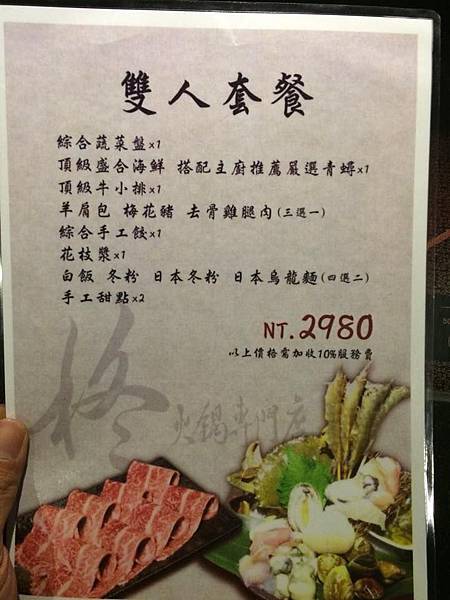 雙人套餐
綜合蔬菜盤x1
頂級盛合海鮮 搭配主廚推薦嚴選青蟳x1
頂級牛小排x1
羊肩包 梅花豬 去骨雞腿肉(三選一)
綜合手工餃x1
花枝漿x1
白飯 冬粉 日本冬粉 日本烏龍麵(四選二)
手工甜點x2
NT.2980
以上價格需加收10%服務費
柊
火鍋專門店